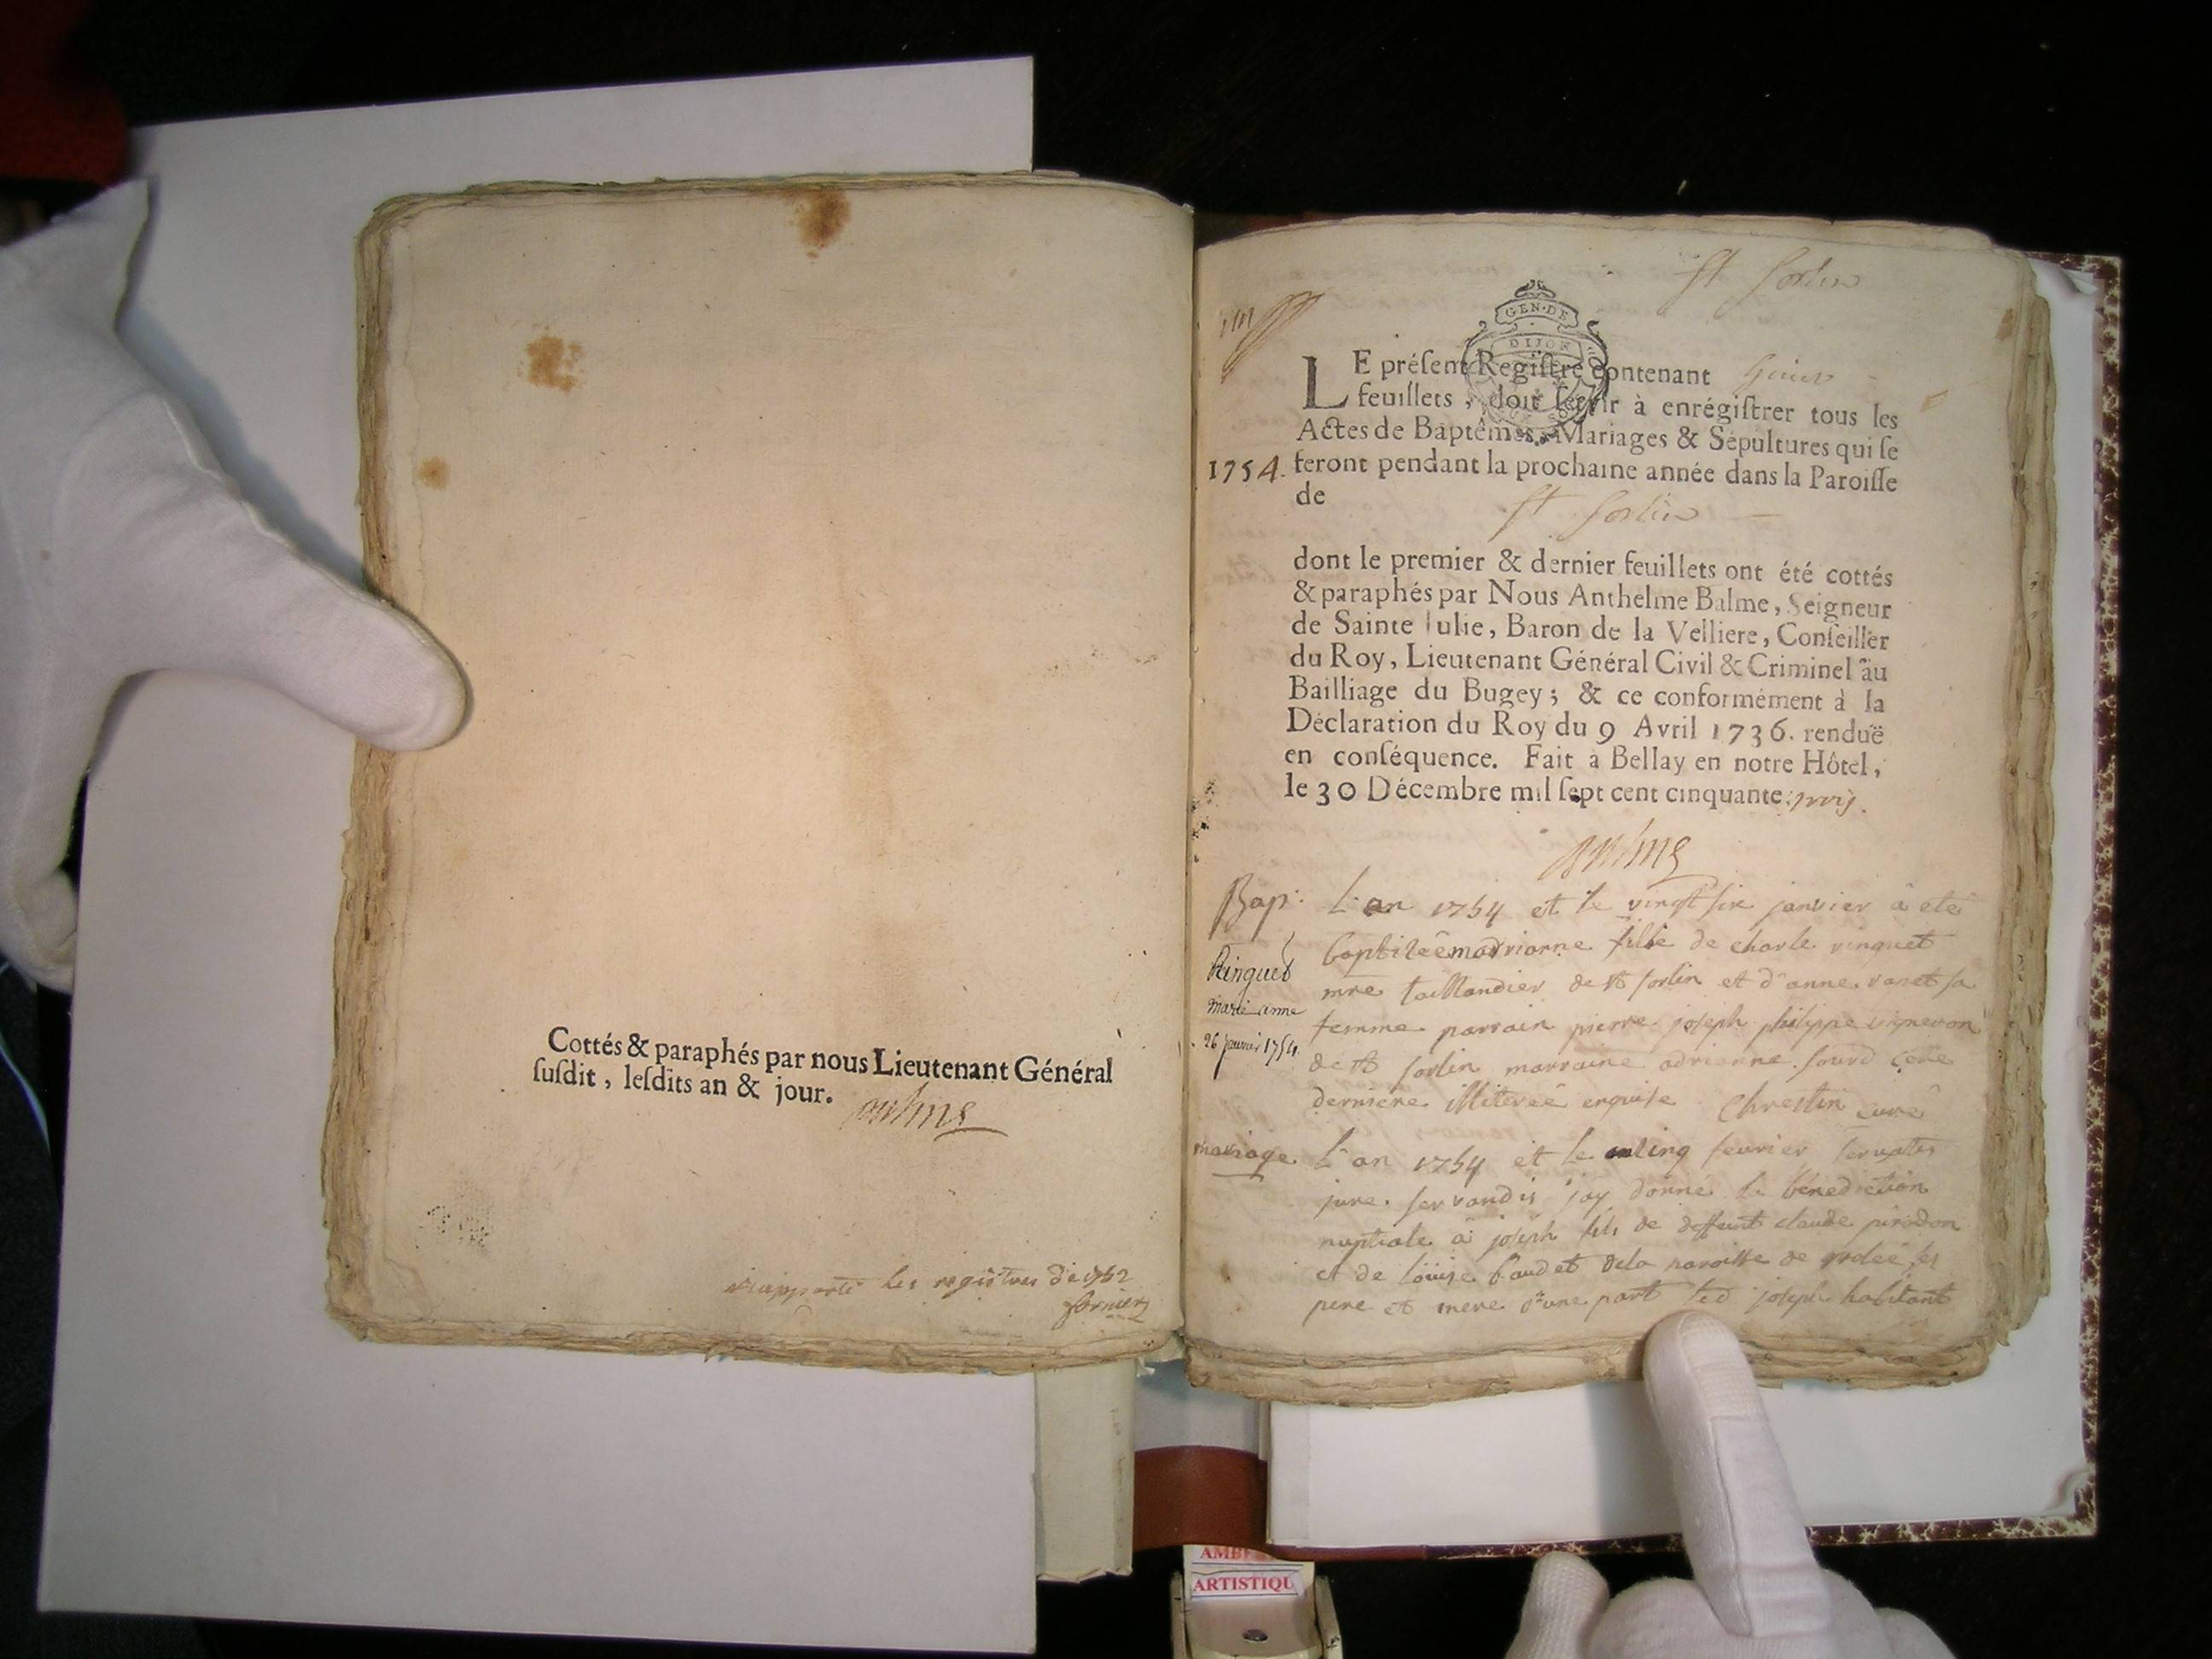 Cottés & paraphés par nous Lieutenant Général
ſuſdit, leſdits an & jour.
les registres de 1752
St Sorlin
GEN·DE
DIJON
LE préſent Regiſtre contenant
feuillets, doit ſervir à enrégiſtrer tous les
Actes de Baptêmes, Mariages & Sépultures qui ſe
1754. feront pendant la prochaine année dans la Paroiſſe
de
St Sorlin
dont le premier & dernier feuillets ont été cottés
& paraphés par Nous Anthelme Balme, Seigneur
de Sainte Julie, Baron de la Velliere, Conſeiller
du Roy, Lieutenant Général Civil & Criminel au
Bailliage du Bugey; & ce conformément à la
Déclaration du Roy du 9 Avril 1736. renduë
en conſéquence. Fait à Bellay en notre Hôtel,
le 30 Décembre mil ſept cent cinquante trois.
Bap:
Ringuet
marie anne
26 janvier 1754.
L'an 1754 et le vingt six janvier à eté
fille de charle ringuet
mre taillandier de st sorlin et d'anne sa
femme parrain pierre joseph philippe vigneron
de st sorlin marraine adrienne sourd
derniere illiterée enquise Chrestin curé
mariage
L'an 1754 et le cinq fevrier servatis
jure servandis j'ay donné la bénédiction
nuptiale à joseph fils de deffunt claude pirodon
et de loüise baudet dela paroisse de ses
pere et mere d'une part led joseph habitant
AMBE
ARTISTIQU